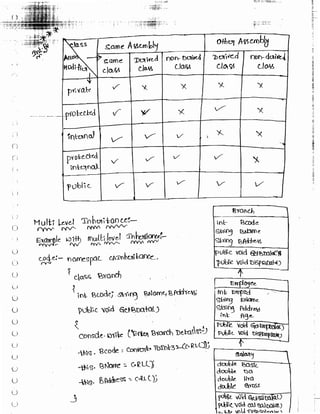 class Same Assembly Other Assembly
Same class Derived class non-Derived class Derived class non-derived class
private ✓ × × × ×
protected ✓ ✓ × ✓ ×
Internal ✓ ✓ ✓ × ×
protected internal ✓ ✓ ✓ ✓ ×
Public ✓ ✓ ✓ ✓ ✓
Multi Level Inheritance:-
Example with multi level Inheritance:-
code:- namespace
{
class Branch
{
int Bcode; string BName, BAddress;
public void GetBData()
{
Console.Write ("Enter Branch Details:");
this. Bcode =
this. BName = C.RL();
this. BAddress = C.RL();
}
Branch
int Bcode
String BName
String BAddress
Public void GetBData()
Public void DispBData()
Employee
int EmpId
String EName
String Address
int Age
Public void
Public void
Salary
double Basic
double DA
double HRA
double Gross
public void
public void